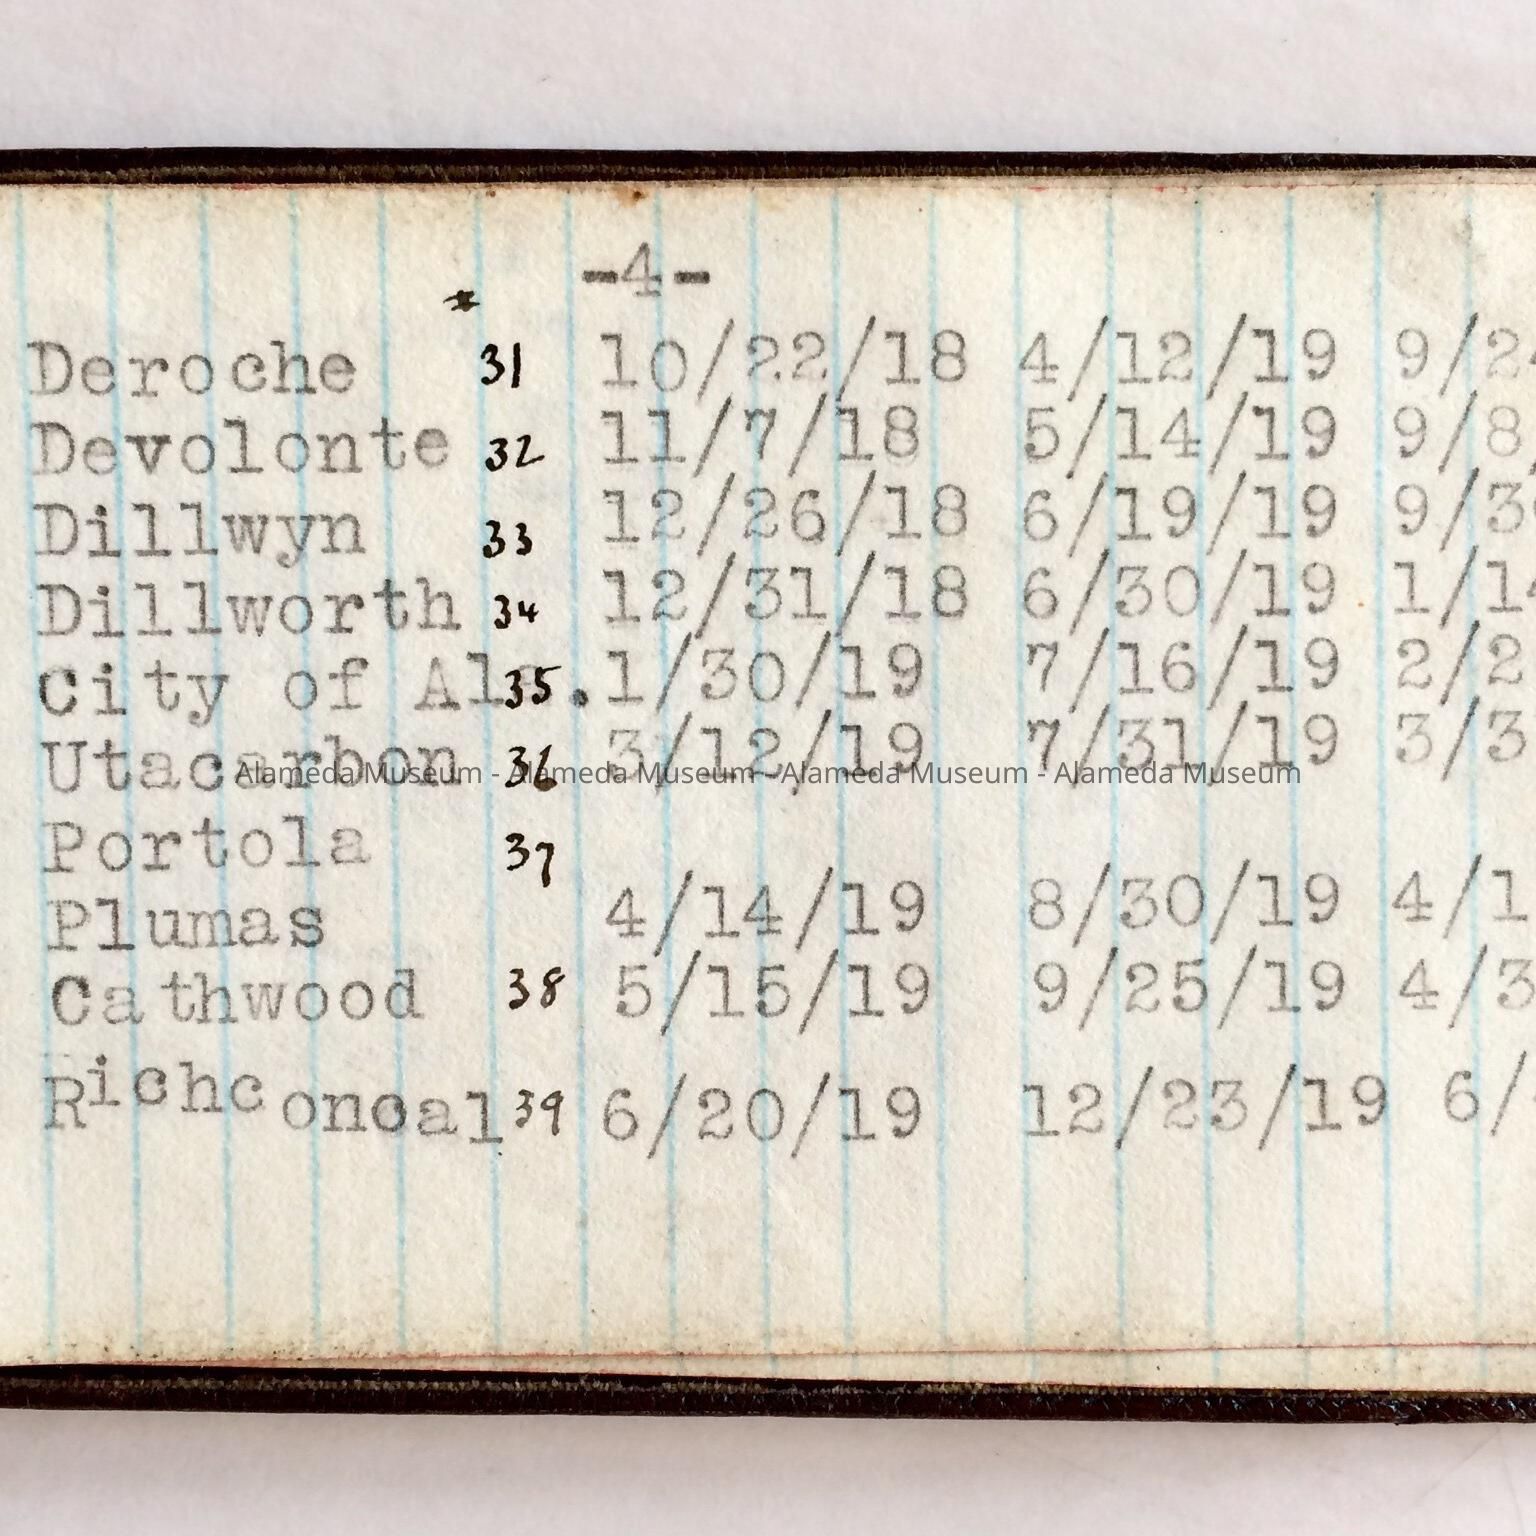 -4-
#
Deroche 31 10/22/18 4/12/19 9/24
Devolonte 32 11/7/18 5/14/19 9/8/
Dillwyn 33 12/26/18 6/19/19 9/3
Dillworth 34 12/31/18 6/30/19 1/14
City of Ala. 35 1/30/19 7/16/19 2/2
Utacarbon 36 3/12/19 7/31/19 3/3
Alameda Museum - Alameda Museum - Alameda Museum - Alameda Museum
Portola 37
Plumas 4/14/19 8/30/19 4/1
Cathwood 38 5/15/19 9/25/19 4/3
Richconcal 39 6/20/19 12/23/19 6/